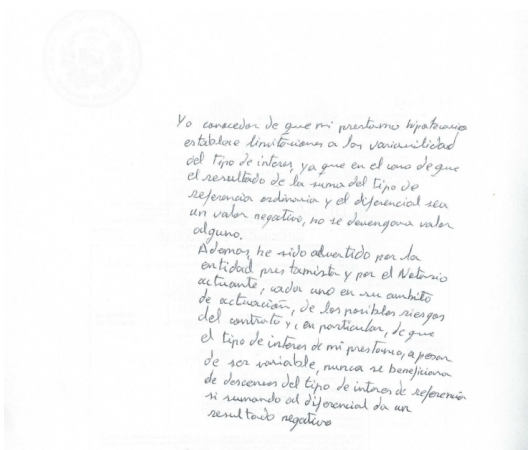 Yo conocedor de que mi prestamo hipotecario
establece limitaciones a la variavilidad
del tipo de interes, ya que en el caso de que
el resultado de la suma del tipo de
referencia ordinaria y el diferencial sea
un valor negativo, no se devengara valor
alguno.
Ademas, he sido advertido por la
entidad prestamista y por el Notario
actuante, cada uno en su ambito
de actuación, de los posibles riesgos
del contrato y, en particular, de que
el tipo de interes de mi prestamo, a pesar
de ser variable, nunca se beneficiara
de descensos del tipo de interes de referencia
si sumando al diferencial da un
resultado negativo